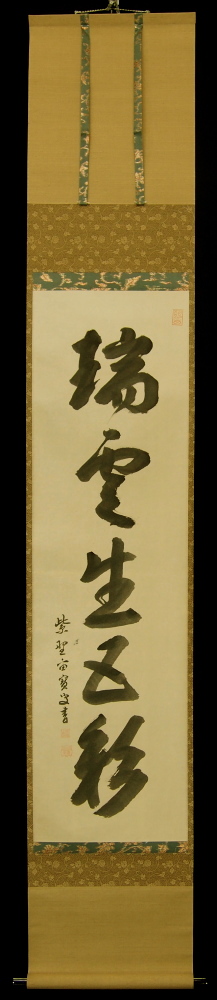 瑞雲生五彩
紫野宙寳叟書